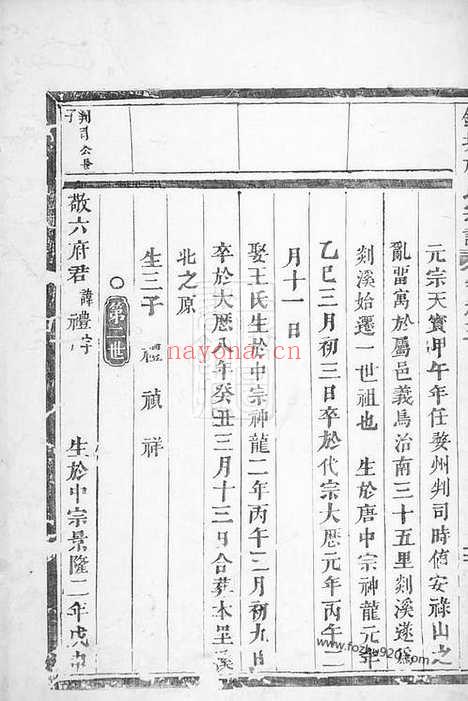 元宗天寶甲午年任婺州判司時值安祿山之
亂畱寓於屬邑義烏治南三十五里剡溪遂爲
剡溪始遷一世祖也　生於唐中宗神龍元年
乙巳三月初三日卒於代宗大歴元年丙午二
月十一日
娶王氏生於中宗神龍二年丙午二月初九日
卒於大歴八年癸丑三月十三日合葬本里溪
北之原
生三子　禮　禎　祥
第二世
判司公長
子
敬六府君 諱禮字八　生於中宗景隆二年戊申
nayona.cn
www.fozhu920.com